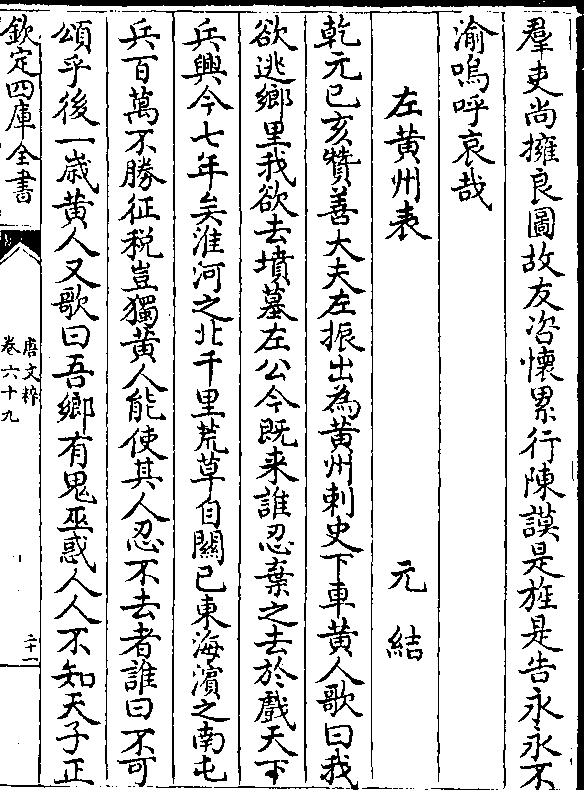 羣吏尚擁良圖故友咨懷累行陳謨是旌是告永永不
渝嗚呼哀哉
左黄州表　元結
乾元己亥贊善大夫左振出為黄州刺史下車黄人歌曰我
欲逃鄉里我欲去墳墓左公今既来誰忍棄之去於戲天下
兵興今七年矣淮河之北千里荒草自關已東海濱之南屯
兵百萬不勝征税豈獨黄人能使其人忍不去者誰曰不可
頌乎後一歳黄人又歌曰吾鄉有鬼巫惑人人不知天子正
欽定四庫全書
唐文粹
卷六十九
二十一